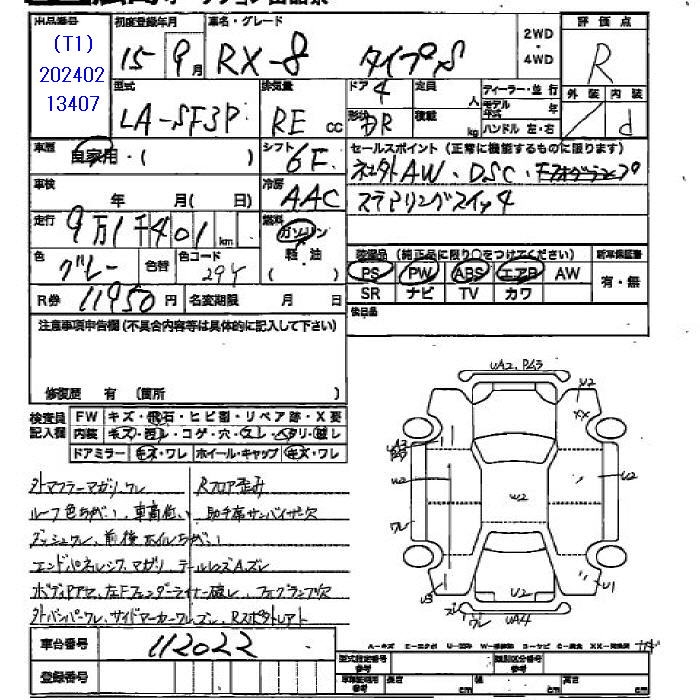 出品番号 初度登録年月 車名・グレード 2WD・4WD 評価点
(T1)
202402
13407
15年9月 RX-8 タイプS R
型式 排気量 ドア 定員 人 ディーラー・並行 外装 内装
LA-SE3P RE cc 4 モデル年式 年 d
形状 積載 kg ハンドル 左・右
車歴 自家用・( ) シフト 6F セールスポイント(正常に機能するものに限ります)
社外AW、DSC、フォグランプ
車検 年 月( 日) 冷房 AAC ステアリングスイッチ
走行 9万1千401km 燃料 ガソリン 軽油 ( )
装備品(純正品に限り○をつけてください) 新車保証書
色 グレー 色替 色コード 29Y
PS PW ABS エアB AW 有・無
SR ナビ TV カワ
R券 11950円 名変期限 月 日
後日品
注意事項申告欄(不具合内容等は具体的に記入して下さい)
修復歴 有 (箇所 )
検査員記入欄 FW キズ・飛石・ヒビ割・リペア跡・X要
内装 キズ・汚レ・コゲ・穴・スレ・ヘタリ・破レ
ドアミラー キズ・ワレ ホイール・キャップ キズ・ワレ
UA2、
U2
XX
W2
ワレ
W2
U2
U3
U2
U1
ワレ UA4
外マフラーマガリ、ワレ Rフロア歪み
ルーフ色ちがい、車高低い、助手席サンバイザー欠
ダッシュワレ、前後ホイルちがい
エンドパネル マガリ テールレンズA、ズレ
左Fフェンダーライナー破レ、フォグランプ欠
外バンパーワレ、サイドマーカーワレ
車台番号 112022
登録番号
A-キズ E-エクボ U-凹 W-補修跡 S-サビ C-腐食 XX-交換済
型式指定番号 類別区分番号
長さ cm 幅 cm 高さ cm